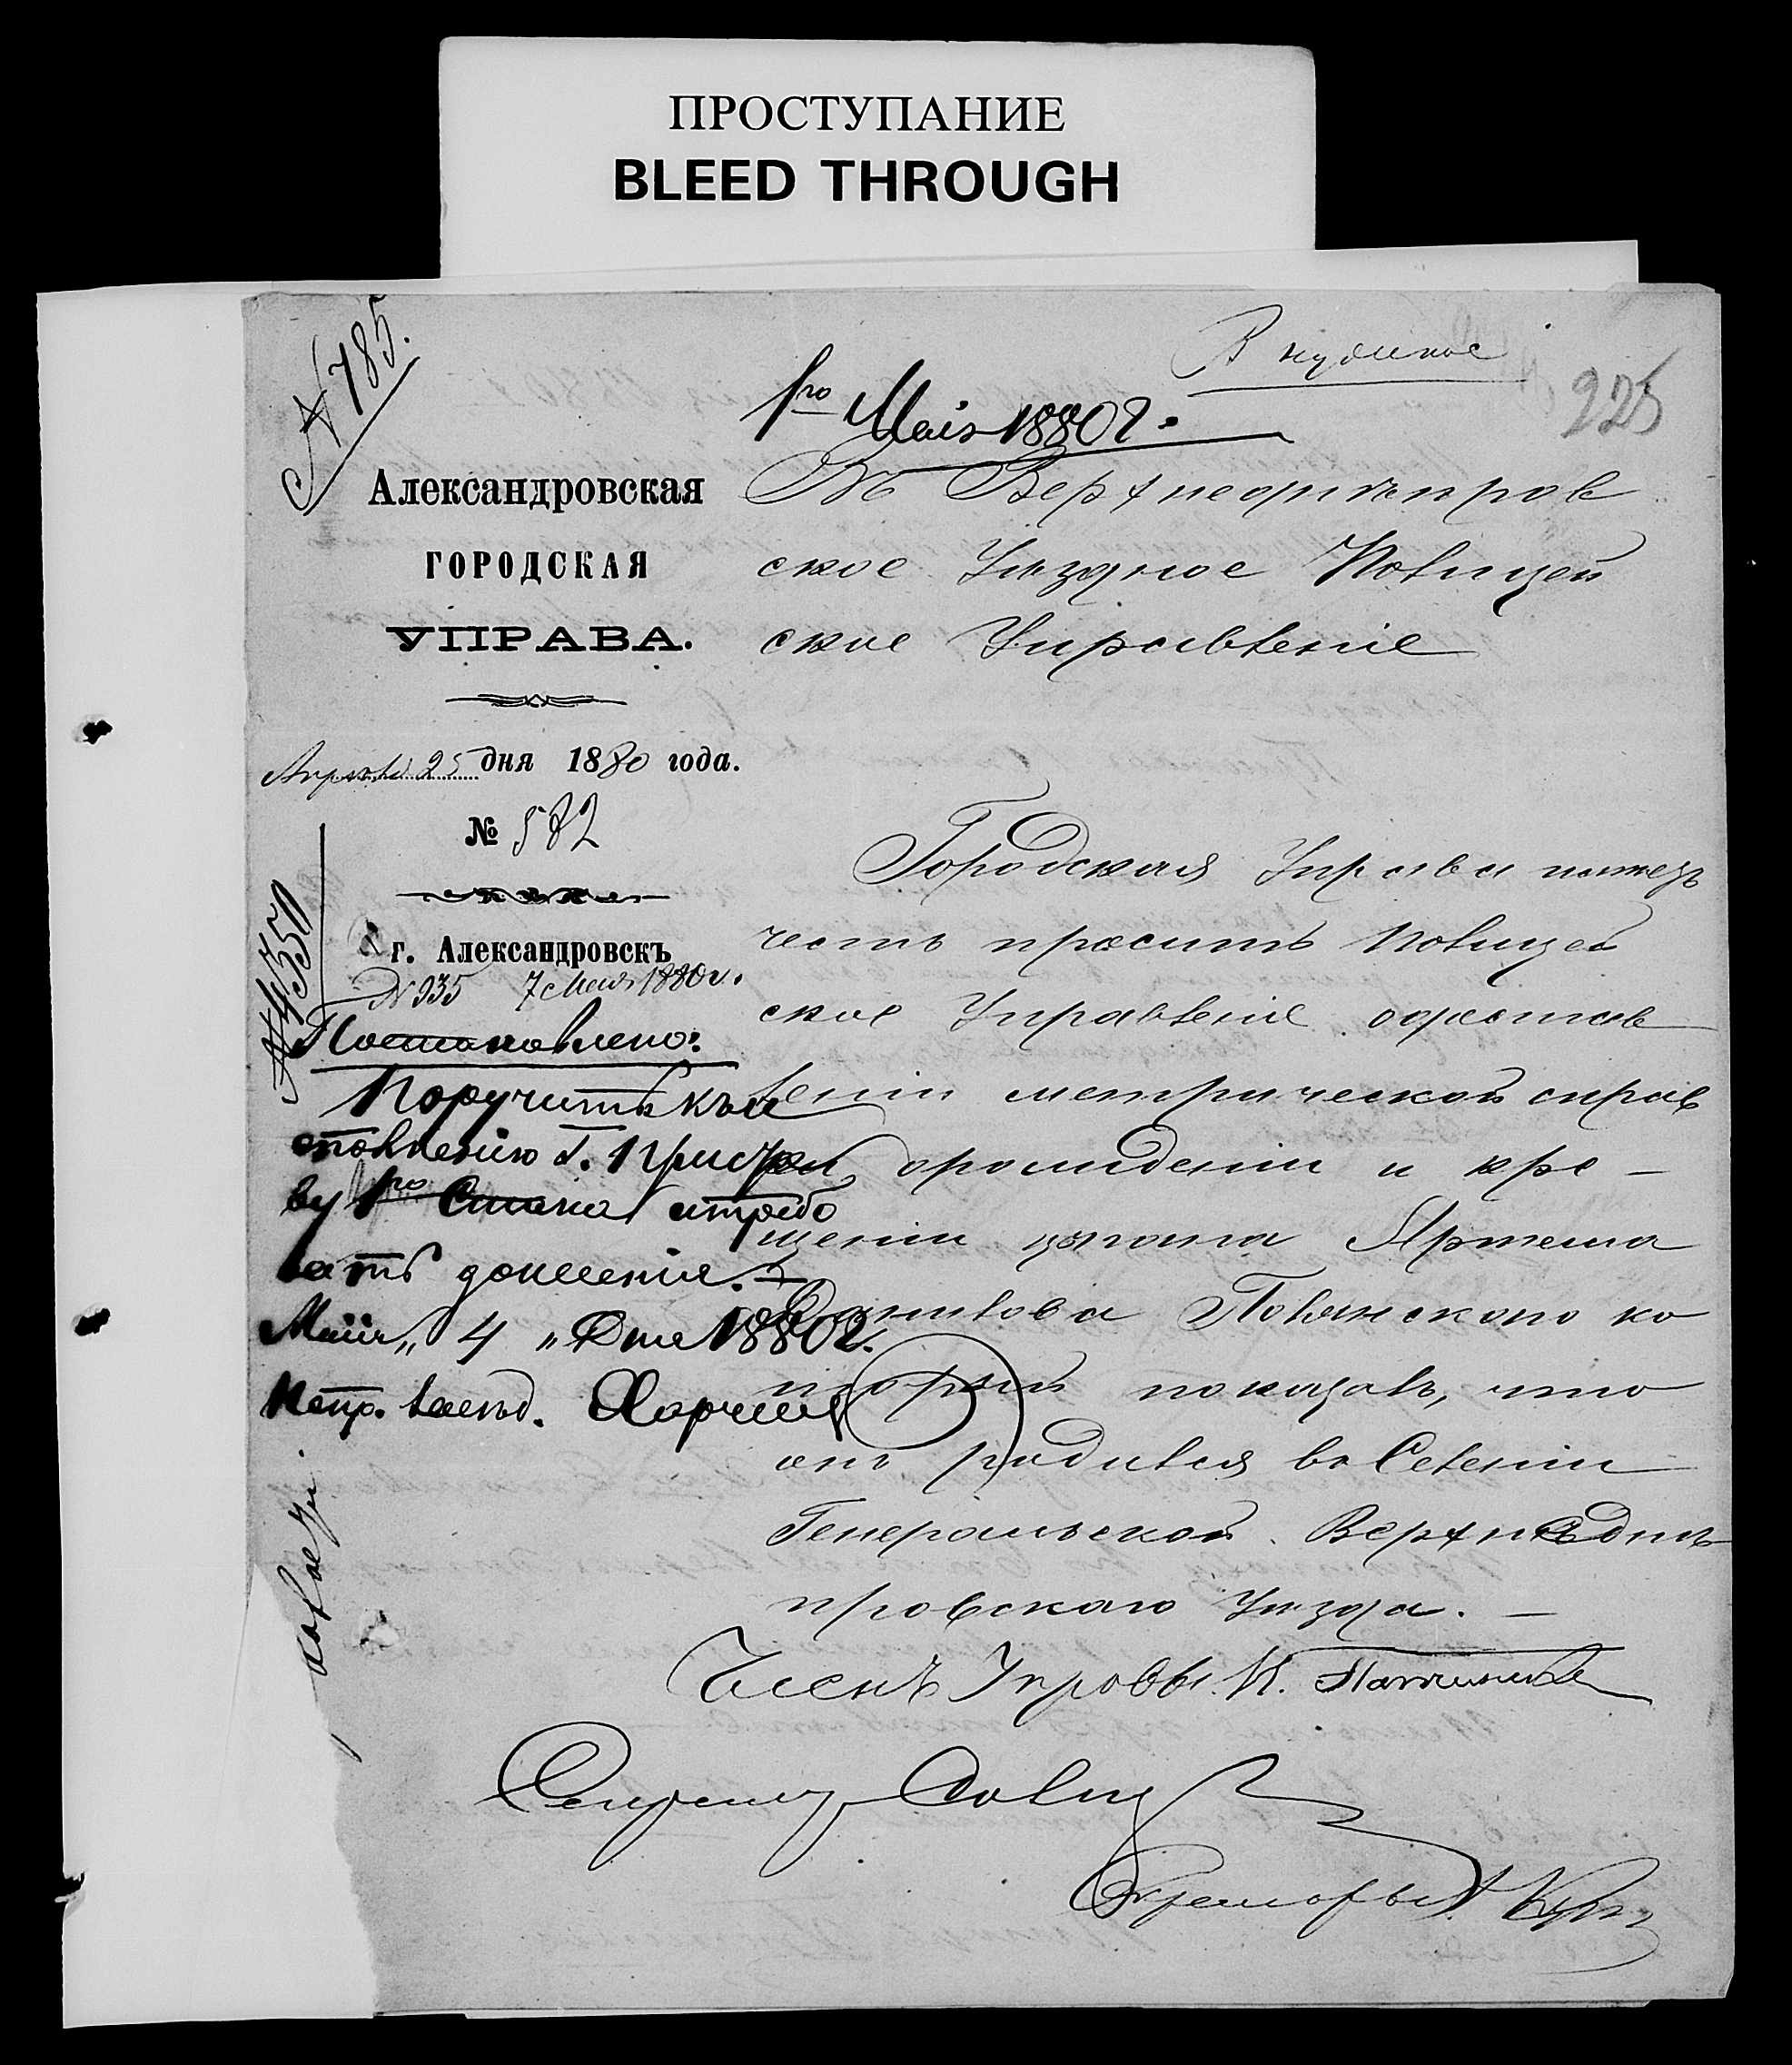 ПРОСТУПАНИЕ
BLEED THROUGH
№ 785.
225
1го Мая 1880 г.
Александровская
ГОРОДСКАЯ
УПРАВА.
Апреля 25 дня 1880 года.
№ 582
г. Александровскъ
№ 935 7 Мая 1880 г.
№ 4350
Постановлено:
Поручить къ
г. Приста
ву 1го Стана
вать донесенія.
Мая „ 4 „ Дня 1880 г.
Непр. засѣд.
Въ Верхнеднѣпров
ское Уѣздное Полицей
ское Управленіе
Городская Управа имѣетъ
честь проситъ Полицей
ское Управленіе о достав
леніи метрической справ
ки о рожденіи и кре-
щеніи цыгана Артема
Данилова Полянского ко
торый показалъ, что
онъ родился въ Селеніи
Генеральской Верхнеднѣ
провскаго Уѣзда. —
Членъ Управы И.
Секретарь